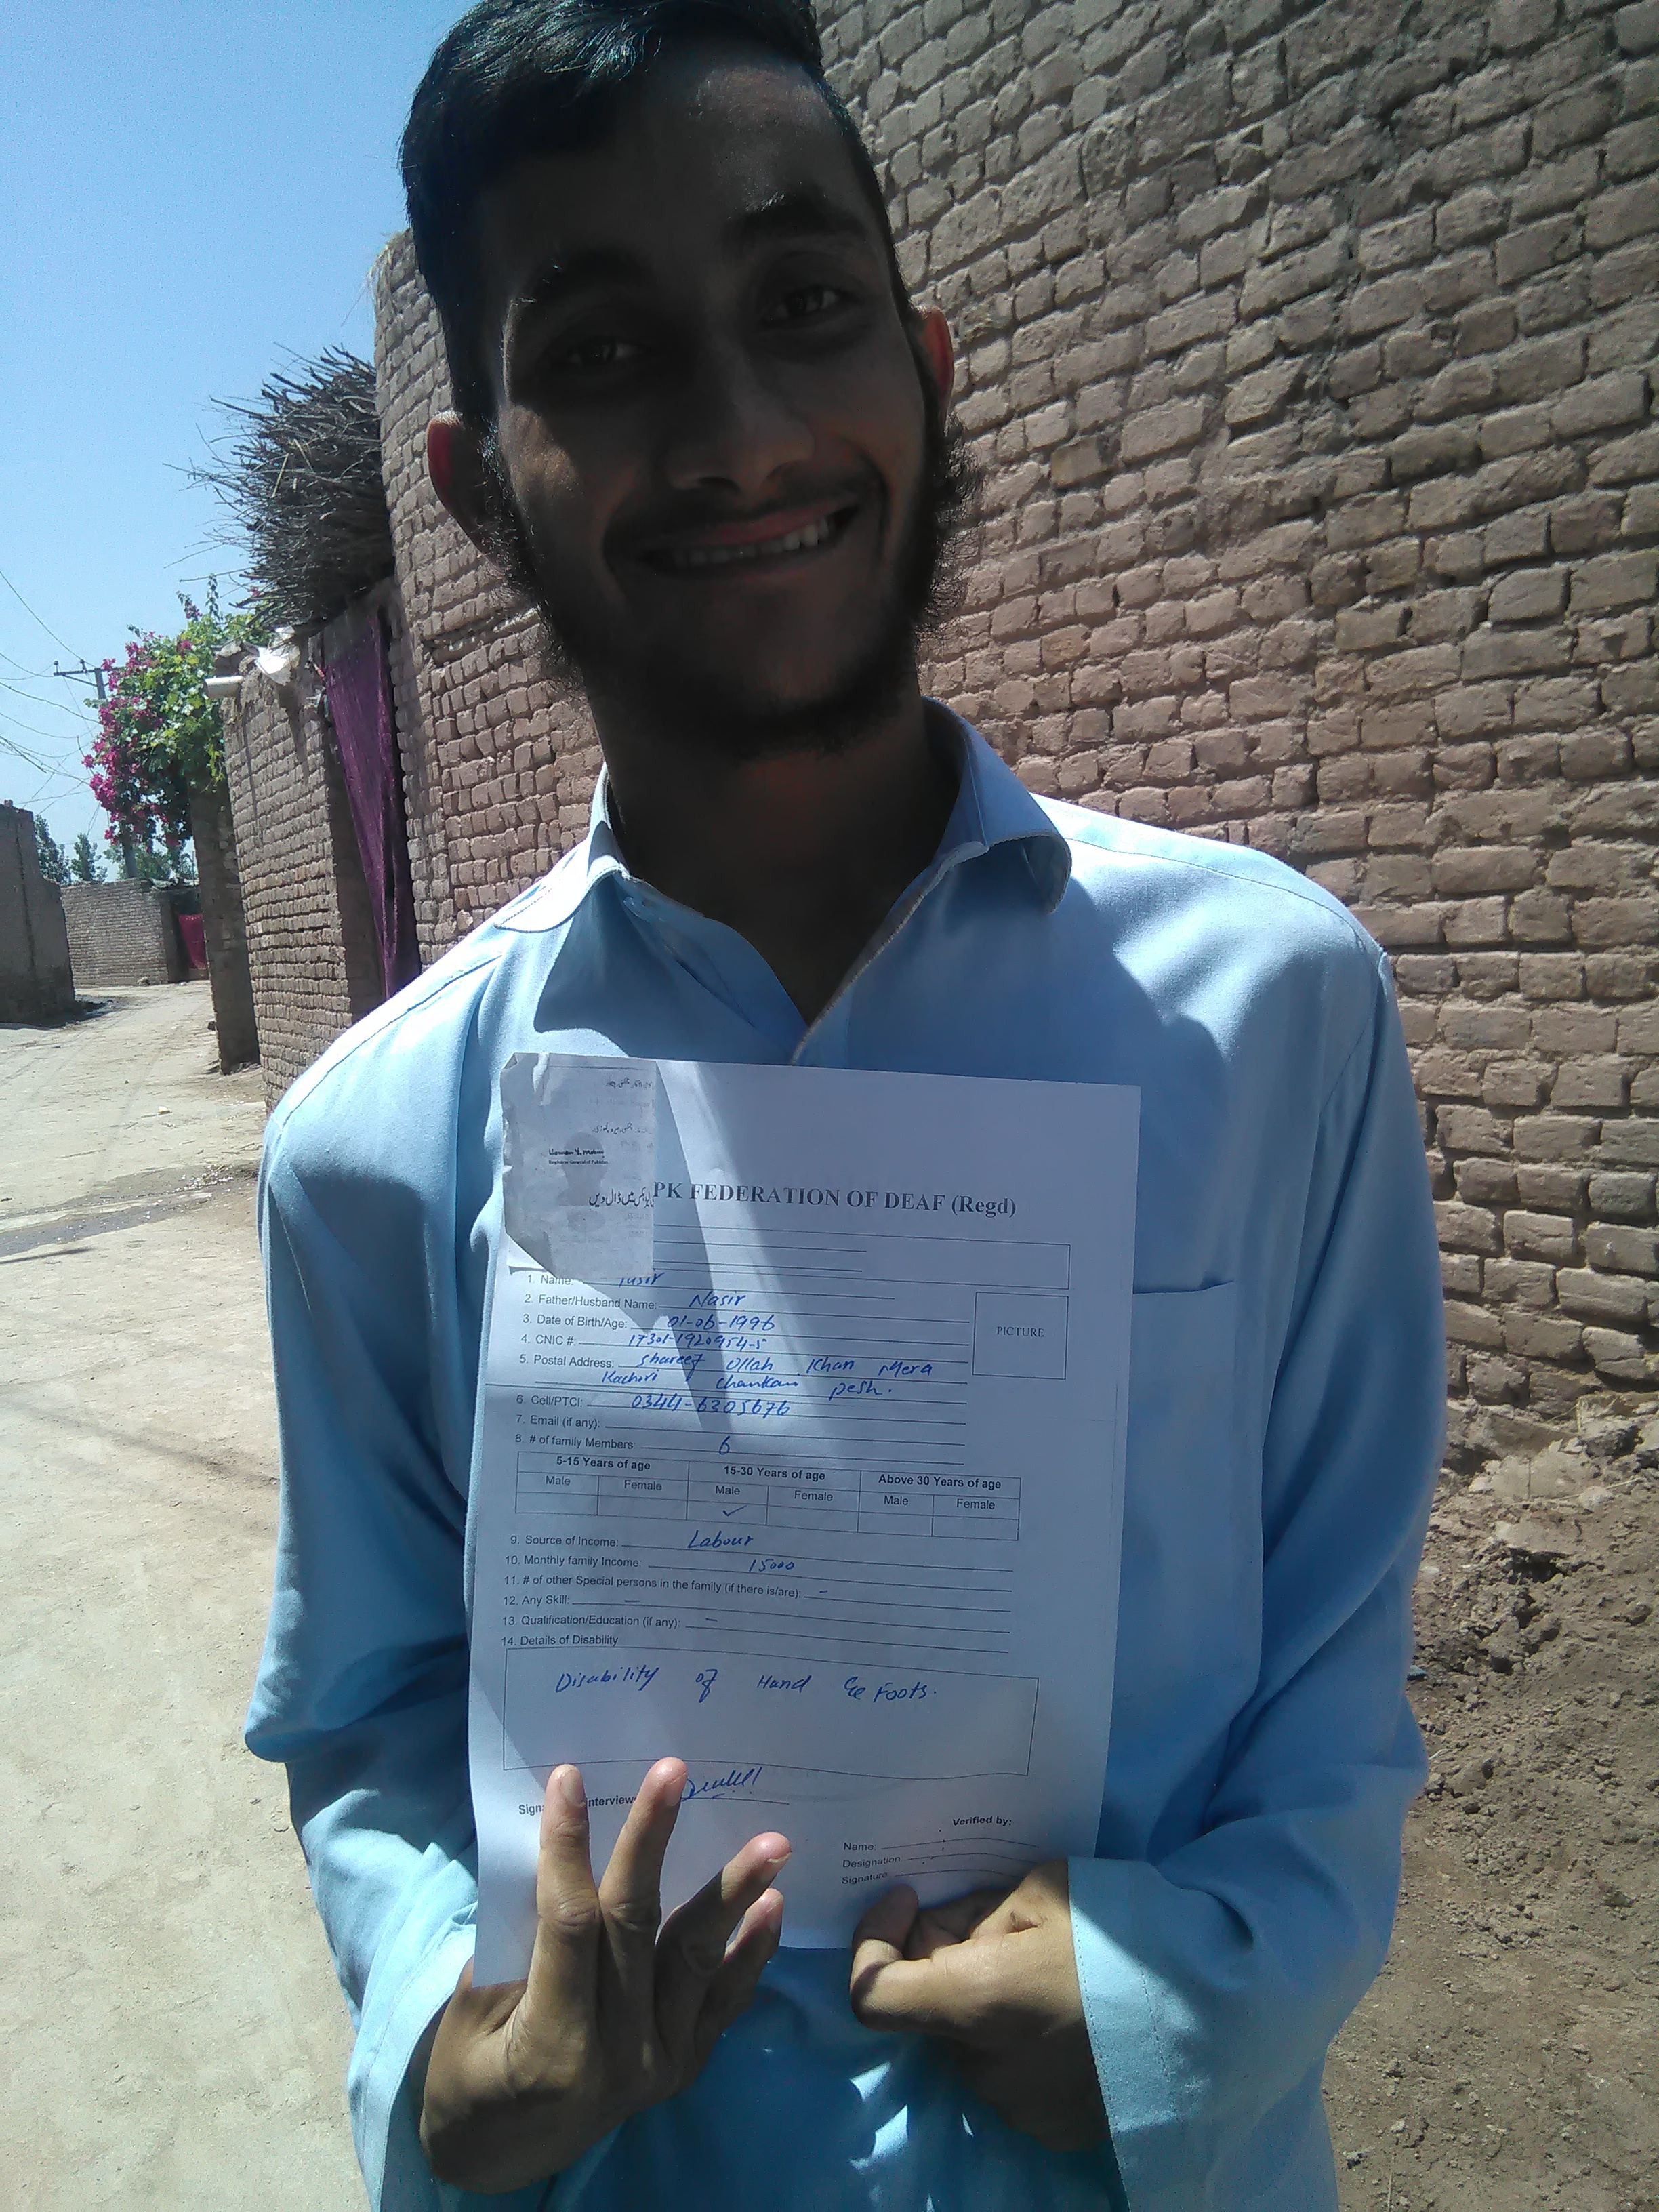 Registrar General of Pakistan
PK FEDERATION OF DEAF (Regd)
1. Name:
2. Father/Husband Name: Nasir
3. Date of Birth/Age: 01-06-1996
4. CNIC #: 17301-1920954-5
5. Postal Address: Shareef Ullah Khan Mera
Kachori Chamkani pesh.
6. Cell/PTCl: 0344-6305676
7. Email (if any):
8. # of family Members: 6
5-15 Years of age 15-30 Years of age Above 30 Years of age
Male Female Male Female Male Female
✓
9. Source of Income: Labour
10. Monthly family Income: 15000
11. # of other Special persons in the family (if there is/are): -
12. Any Skill: -
13. Qualification/Education (if any): -
14. Details of Disability
Disability of Hand & Foots.
PICTURE
Verified by;
Name:
Designation
Signature